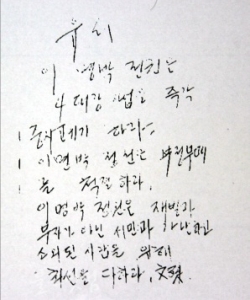 이 명박 정권은
4대강 사업을 즉각
중지 폐기 하라.
이명박 정권은 부정부패
를 척결 하라.
이명박 정권은 재벌과
부자가 아닌 서민과 가난하고
소외된 사람을 위해
최선을 다하라. 文殊